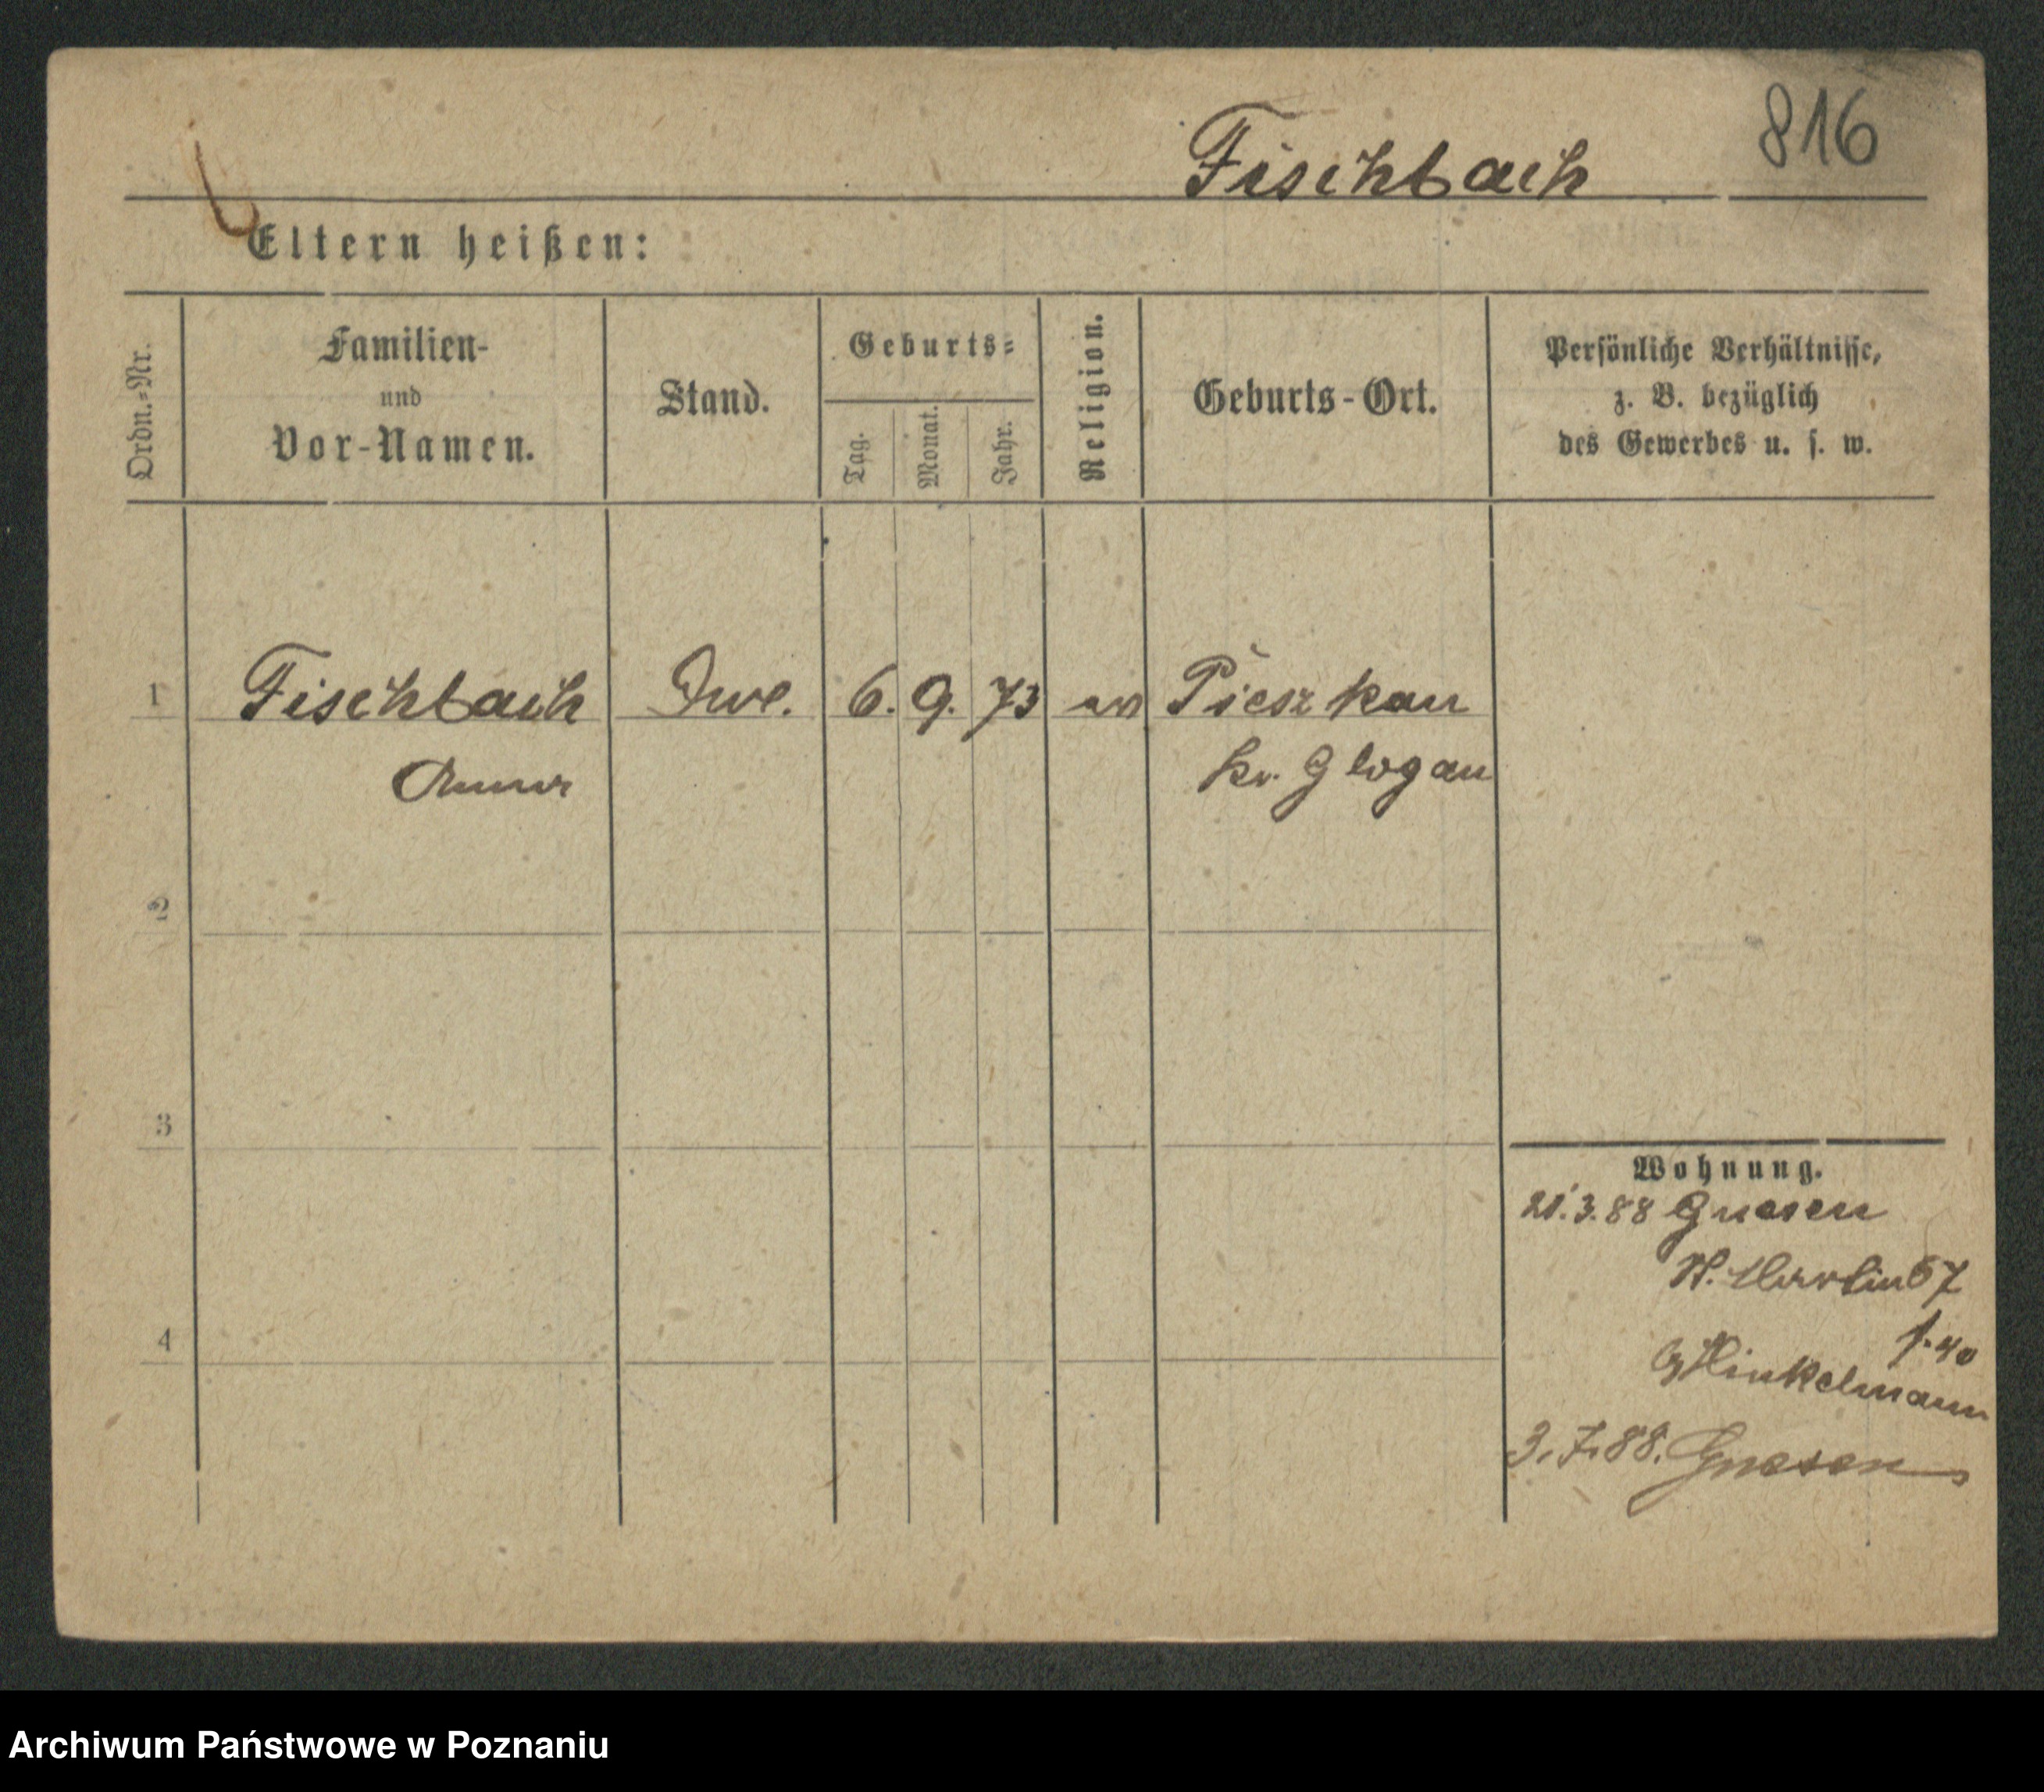 816
Fischbach
Eltern heißen:
Ordn.-Nr.
Familien-
und
Vor-Namen.
Stand.
Geburts-
Tag.
Monat.
Jahr.
Religion.
Geburts-Ort.
Persönliche Verhältnisse,
z. B. bezüglich
des Gewerbes u. s. w.
1 Fischbach 6. 9. 73 Pieszkau
Anna Kr. Glogau
2
3
4
Wohnung.
21.3.88 Gnesen
St. Martin 67
b. Hinkelmann
3.7.88. Gnesen
Archiwum Państwowe w Poznaniu